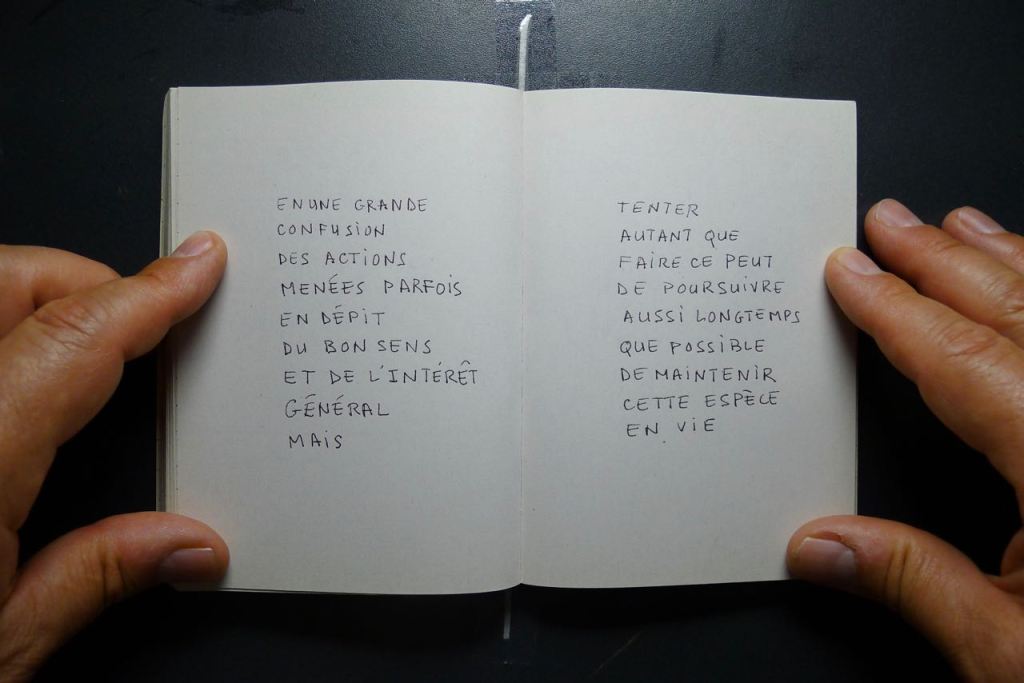 EN UNE GRANDE
CONFUSION
DES ACTIONS
MENÉES PARFOIS
EN DÉPIT
DU BON SENS
ET DE L'INTÉRÊT
GÉNÉRAL
MAIS
TENTER
AUTANT QUE
FAIRE CE PEUT
DE POURSUIVRE
AUSSI LONGTEMPS
QUE POSSIBLE
DE MAINTENIR
CETTE ESPÈCE
EN VIE